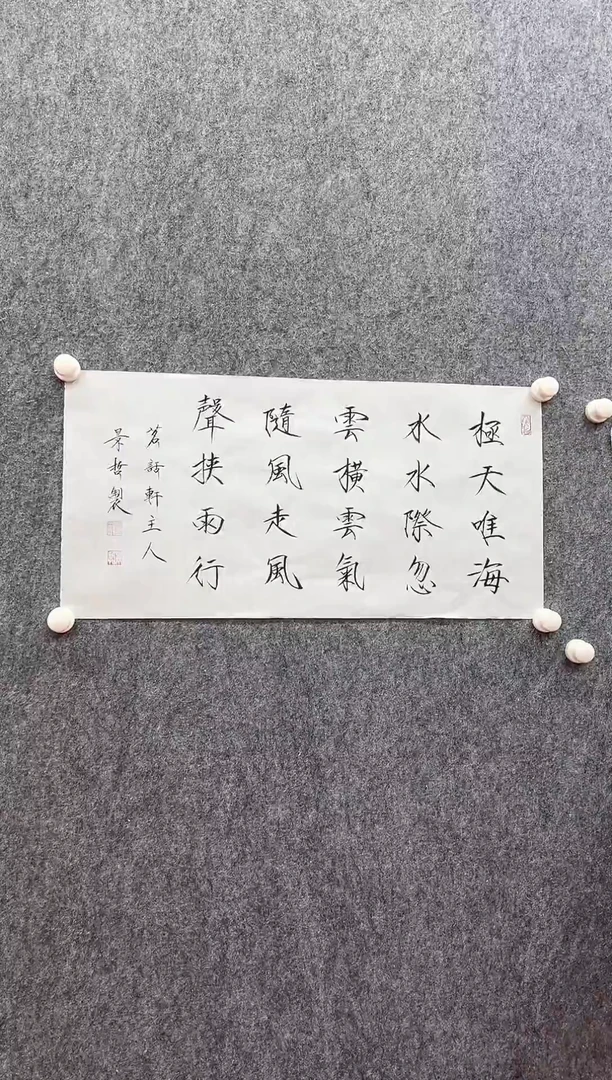 極天唯海
水水際忽
雲橫雲氣
隨風走風
聲挾雨行
茗話軒主人
景哲製